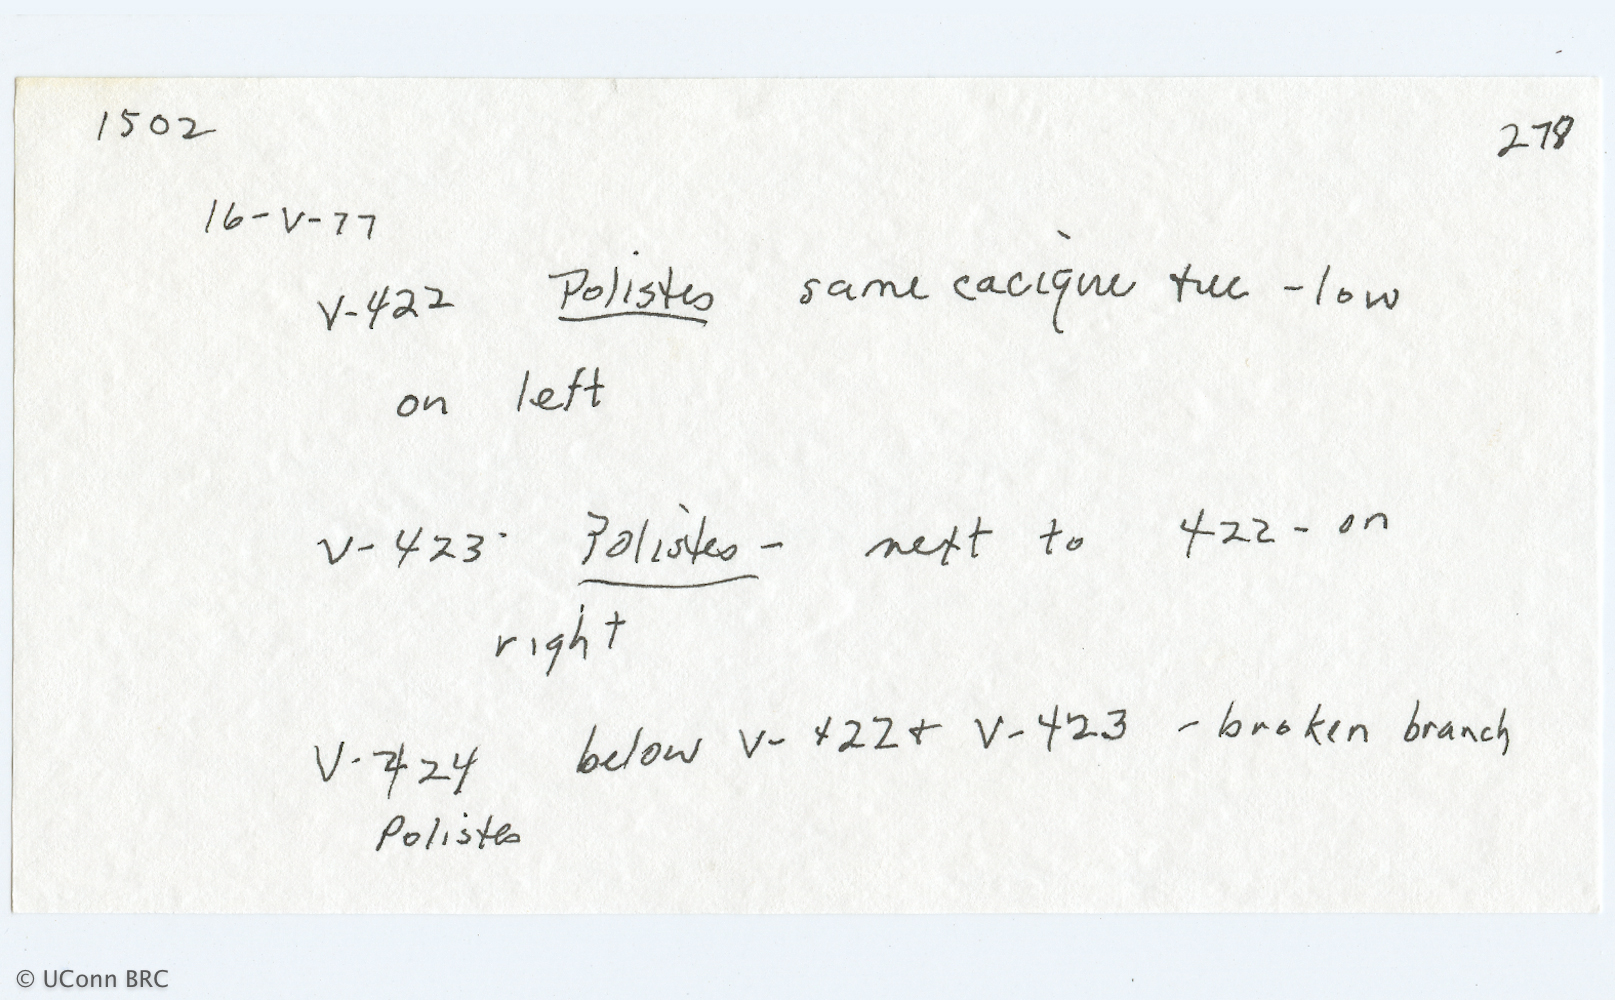 1502 278
16-V-77
V-422 Polistes same cacique tree - low
on left
V-423 Polistes - next to 422 - on
right
V-424 below V-422 + V-423 - broken branch
Polistes
© UConn BRC